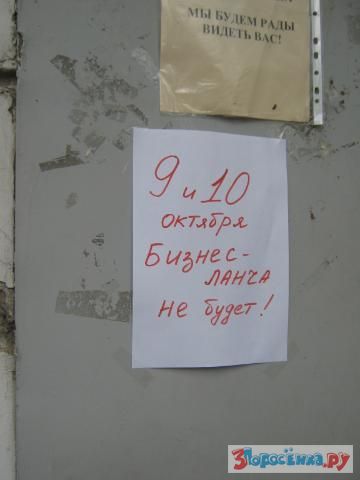 МЫ БУДЕМ РАДЫ
ВИДЕТЬ ВАС!
9 и 10
октября
Бизнес-
ЛАНЧА
не будет!
3Поросёнка.ру